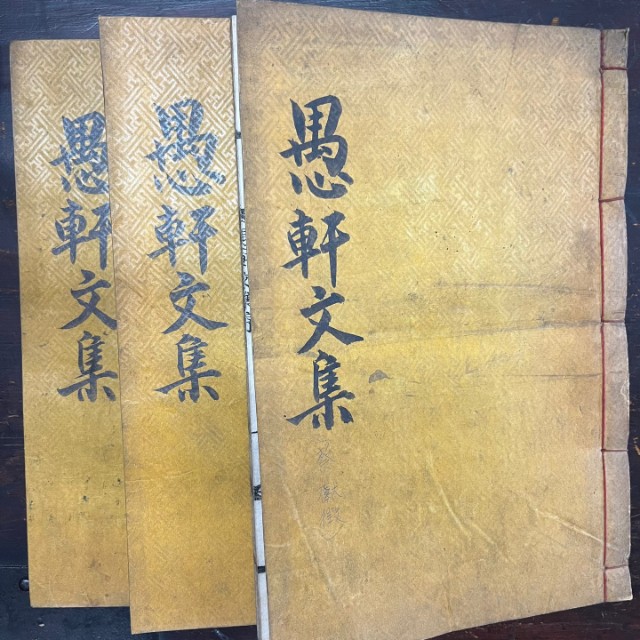 愚軒文集
愚軒文集
愚軒文集